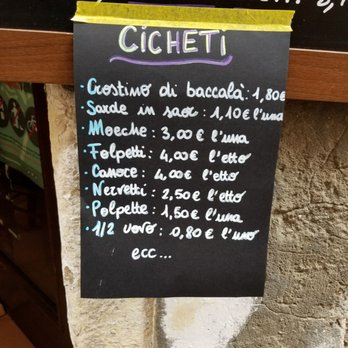 CICHETI
· Crostino di baccalà: 1,80€
· Sarde in saor: 1,10€ l'una
· Moeche: 3,00€ l'una
· Folpetti: 4,00€ l'etto
· Canoce: 4,00€ l'etto
· Nervetti: 2,50€ l'etto
· Polpette: 1,50€ l'una
· 1/2 uovo: 0,80€ l'uno
ecc...